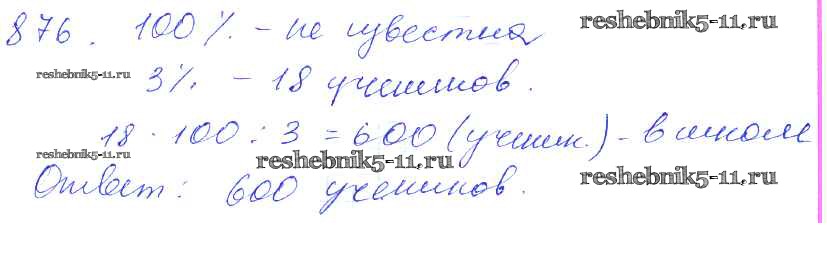 876. 100% - не известна reshebnik5-11.ru
reshebnik5-11.ru 3% - 18 учеников.
18 · 100 : 3 = 600 (ученик.) - в школе
reshebnik5-11.ru reshebnik5-11.ru
Ответ: 600 учеников. reshebnik5-11.ru